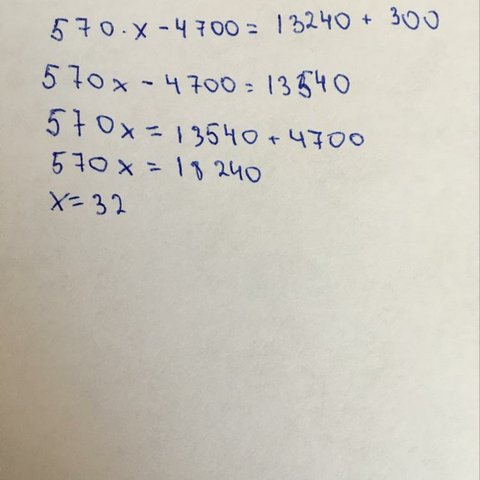 570·x-4700=13240+300
570x-4700=13540
570x=13540+4700
570x=18240
x=32